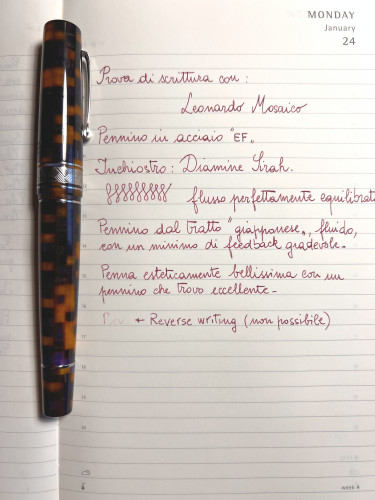 MONDAY
January
24
Prova di scrittura con:
Leonardo Mosaico
Pennino in acciaio "EF„
Inchiostro: Diamine Sirah.
flusso perfettamente equilibrato
Pennino dal tratto "giapponese„, fluido,
con un minimo di feedback gradevole-
Penna esteticamente bellissima con un
pennino che trovo eccellente-
Rev. ← Reverse writing (non possibile)
week 4